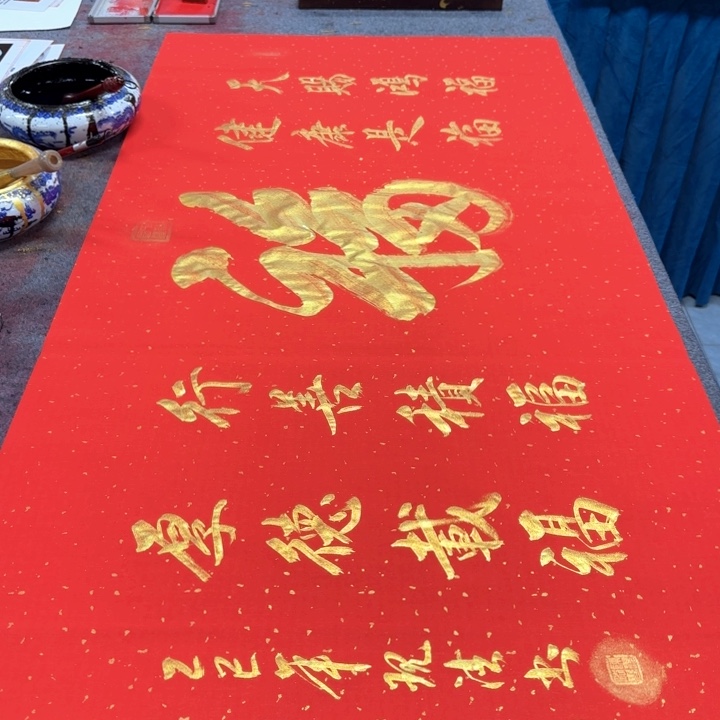 天賜鴻福
健康是福
福
行善積福
厚德載福
乙巳年书